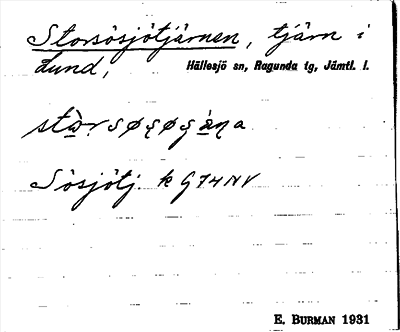 Storsösjötjärnen, tjärn i
Lund, Hällesjö sn, Ragunda tg, Jämtl. l.
Sösjötj. k G74NV
E. BURMAN 1931